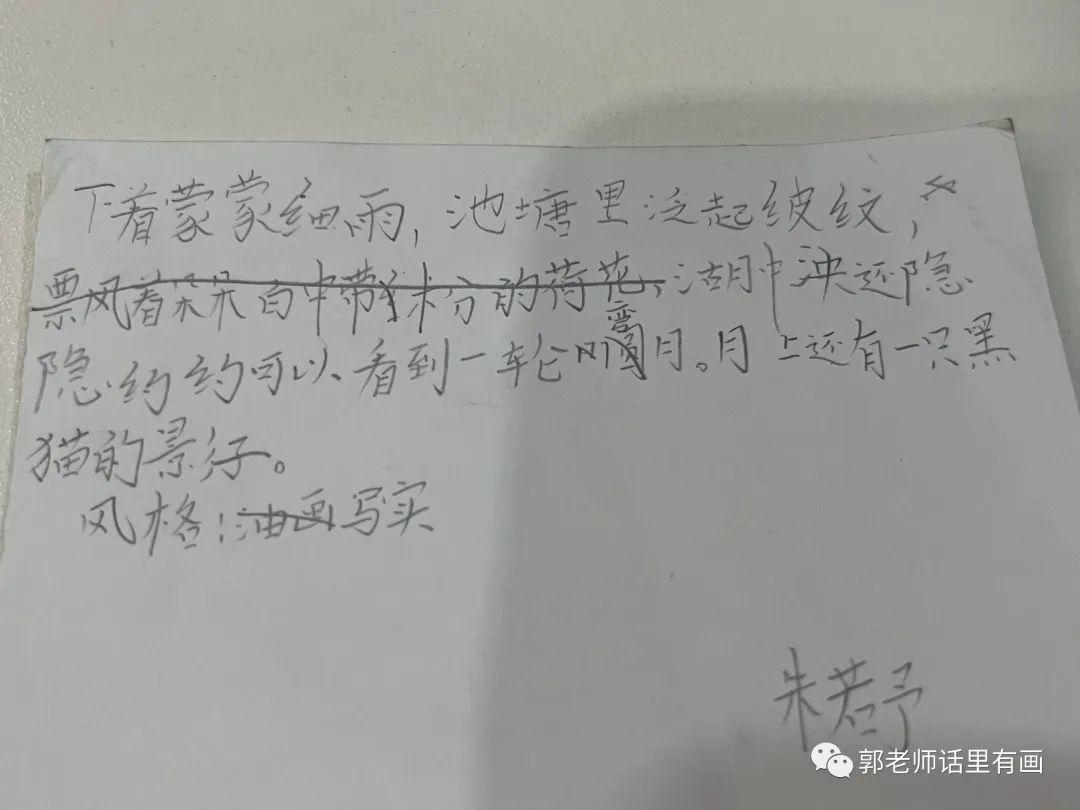 下着蒙蒙细雨，池塘里泛起纹，
票风着朵朵白中带粉的荷花，湖中泱还隐
隐约约可以看到一轮弯月。月上还有一只黑
猫的景行。
风格：油画写实
朱若予
郭老师话里有画